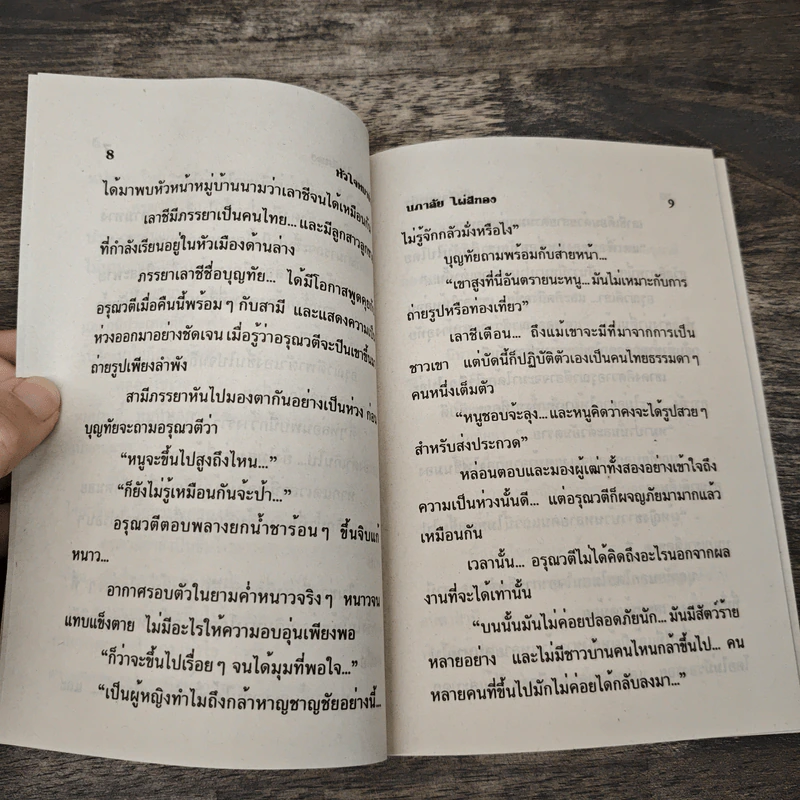 8
หัวใจ
ได้มาพบหัวหน้าหมู่บ้านนามว่าเลาซีจนได้เหมือนกัน
เลาซีมีภรรยาเป็นคนไทย... และมีลูกสาวลูก
ที่กำลังเรียนอยู่ในหัวเมืองด้านล่าง
ภรรยาเลาซีชื่อบุญทัย... ได้มีโอกาสพูดคุย
อรุณวตีเมื่อคืนนี้พร้อมๆ กับสามี และแสดงความเป็น
ห่วงออกมาอย่างชัดเจน เมื่อรู้ว่าอรุณวตีจะปีนเขาขึ้น
ถ่ายรูปเพียงลำพัง
สามีภรรยาหันไปมองตากันอย่างเป็นห่วง ก่อน
บุญทัยจะถามอรุณวตีว่า
“หนูจะขึ้นไปสูงถึงไหน...”
“ก็ยังไม่รู้เหมือนกันจ้ะป้า...”
อรุณวตีตอบพลางยกน้ำชาร้อนๆ ขึ้นจิบแก้
หนาว...
อากาศรอบตัวในยามค่ำหนาวจริงๆ หนาวจน
แทบแข็งตาย ไม่มีอะไรให้ความอบอุ่นเพียงพอ
“ก็ว่าจะขึ้นไปเรื่อยๆ จนได้มุมที่พอใจ...”
“เป็นผู้หญิงทำไมถึงกล้าหาญชาญชัยอย่างนี้...
นภาลัย ไผ่สีทอง
9
ไม่รู้จักกลัวมั่งหรือไง”
บุญทัยถามพร้อมกับส่ายหน้า...
“เขาสูงที่นี่อันตรายนะหนู... มันไม่เหมาะกับการ
ถ่ายรูปหรือท่องเที่ยว”
เลาซีเตือน... ถึงแม้เขาจะมีที่มาจากการเป็น
ชาวเขา แต่บัดนี้ก็ปฏิบัติตัวเองเป็นคนไทยธรรมดาๆ
คนหนึ่งเต็มตัว
“หนูชอบจ้ะลุง... และหนูคิดว่าคงจะได้รูปสวยๆ
สำหรับส่งประกวด”
หล่อนตอบและมองผู้เฒ่าทั้งสองอย่างเข้าใจถึง
ความเป็นห่วงนั้นดี... แต่อรุณวตีก็ผจญภัยมามากแล้ว
เหมือนกัน
เวลานั้น... อรุณวตีไม่ได้คิดถึงอะไรนอกจากผล
งานที่จะได้เท่านั้น
“บนนั้นมันไม่ค่อยปลอดภัยนัก... มันมีสัตว์ร้าย
หลายอย่าง และไม่มีชาวบ้านคนไหนกล้าขึ้นไป... คน
หลายคนที่ขึ้นไปมักไม่ค่อยได้กลับลงมา...”